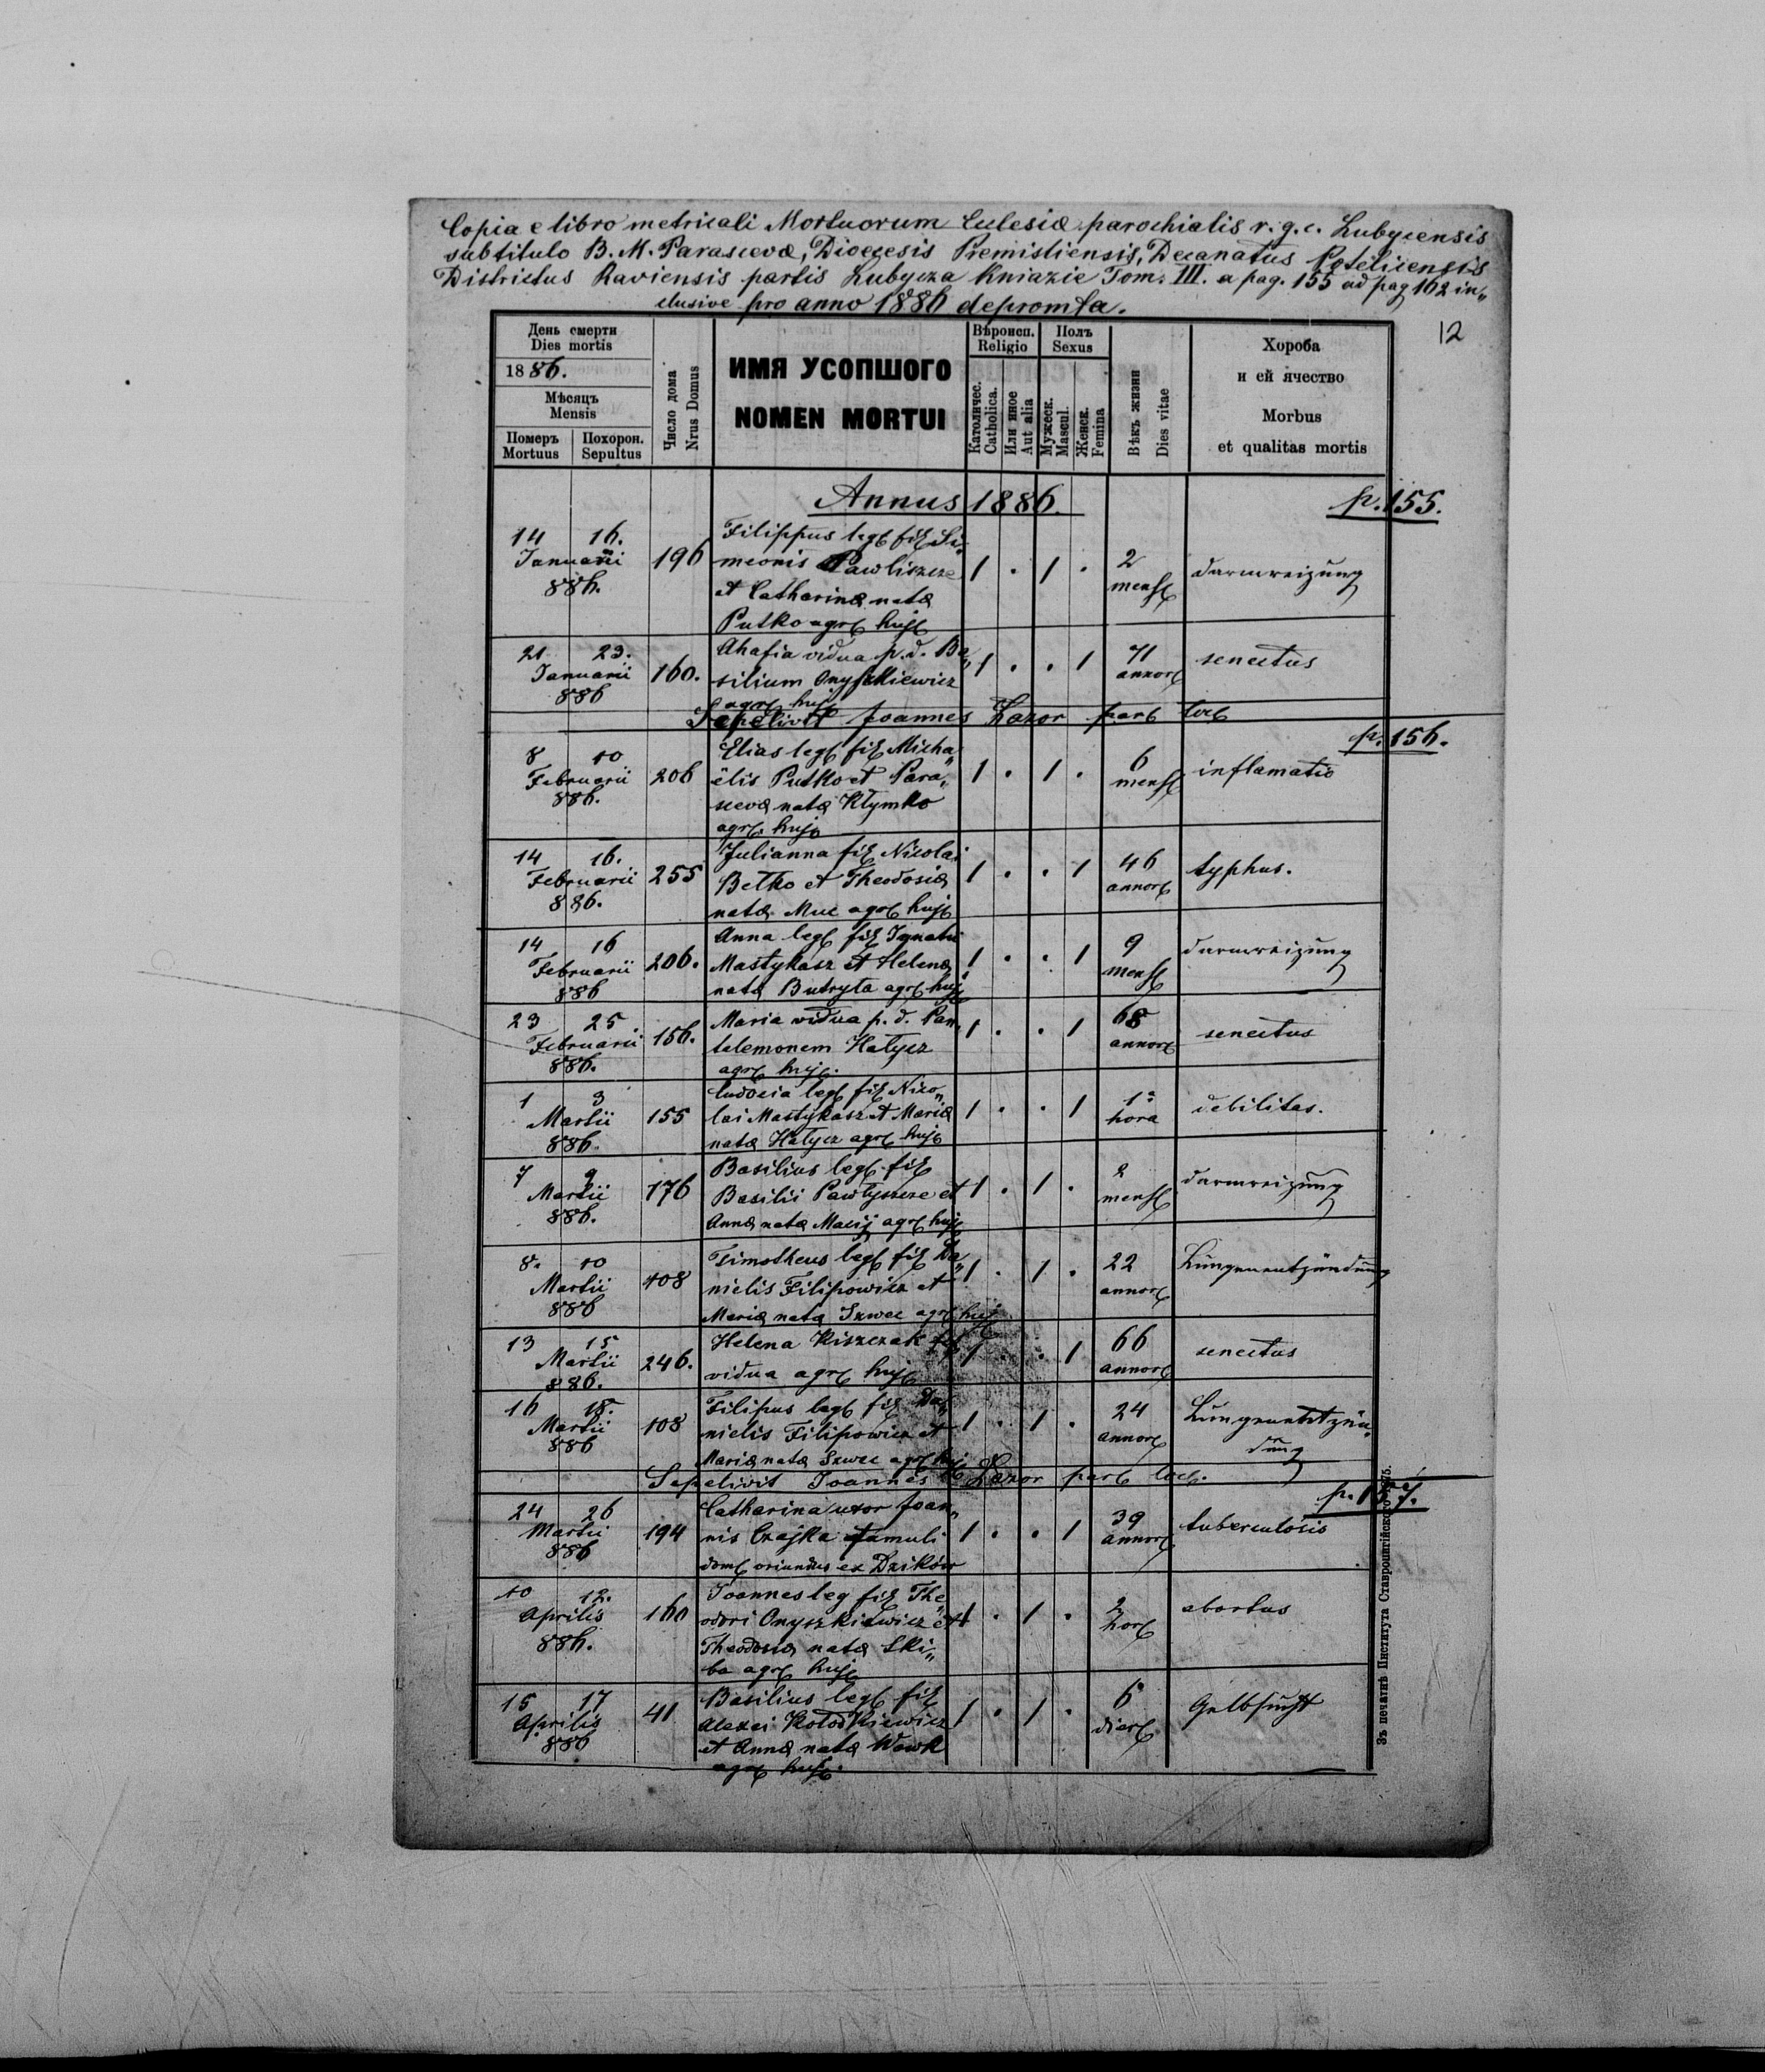 Copia e libro metricali Mortuorum Eclesiæ parochialis r. g. c. Lubycensis
subtitulo B. M. Parascevæ, Dioecesis Premisliensis, Decanatus Potelicensis
Districtus Raviensis partis Lubycza Kniazie Tom. III. a pag. 155 ad pag 162 in„
clusive pro anno 1886 depromta.
12
День смерти
Dies mortis
1886.
Мѣсяцъ
Mensis
Померъ
Mortuus
Похорон.
Sepultus
Число дома
Nrus Domus
ИМЯ УСОПШОГО
NOMEN MORTUI
Вѣроисп.
Religio
Католичес.
Catholica.
Или иное
Aut alia
Полъ
Sexus
Мужеск.
Mascul.
Женск.
Femina
Вѣкъ жизни
Dies vitae
Хороба
и ей ячество
Morbus
et qualitas mortis
Annus 1886.
p. 155.
14 16.
Januarii
886.
196
Filippus leg fil Si„
meonis Pawliszcze
et Catharinæ natæ
Putko agr huj
1 . 1 .
2
mens
darmreizung
21 23.
Januarii
886
160.
Ahafia vidua p. d. Ba„
silium Onyszkiewicz
agr huj
1 . . 1
71
annor
senectus
Sepelivit Joannes Lazor par loc
p. 156.
8 10
Februarii
886.
206
Elias leg fil Micha„
ëlis Putko et Para„
scevæ natæ Kłymko
agr. huj
1 . 1 .
6
mens
inflamatio
14 16.
Februarii
886.
255
Julianna fil Nicolai
Betko et Theodosiæ
natæ Muc agr huj
1 . . 1
46
annor
typhus.
14 16
Februarii
886
206.
Anna leg fil Ignatii
Mastykasz et Helenæ
natæ Butryta agr huj
1 . . 1
9
mens
darmreizung
23 25.
Februarii
886.
156.
Maria vidua p. d. Pan„
talemonem Hatycz
agr huj.
1 . . 1
68
annor
senectus
1 3
Martii
886.
155
Eudocia leg fil Nico„
lai Mastykasz et Mariæ
natæ Hatycz agr huj
1 . . 1
1
hora
debilitas.
7 9
Martii
886.
176
Basilius leg fil
Basilii Pawłyszcze et
Annæ natæ Macij agr huj
1 . 1 .
2
mens
darmreizung
8. 10
Martii
886
108
Timotheus leg fil Da„
nielis Filipowicz et
Mariæ natæ Szwec agr huj
1 . 1 .
22
annor
Lungenentzündung
13 15
Martii
886.
246.
Helena Kiszczak
vidua agr huj
1 . . 1
66
annor
senectus
16 18.
Martii
886
108
Filipus leg fil Da„
nielis Filipowicz et
Mariæ natæ Szwec agr huj
1 . 1 .
24
annor
Lungenentzün„
dung
Sepelivit Joannes Lazor par loc.
p. 157.
24 26
Martii
886
194
Catharina uxor Joan„
nis Czajka famuli
dom oriundus ex Dzików
1 . . 1
39
annor
tuberculosis
10 12.
Aprilis
886.
160
Joannes leg fil The„
odori Onyszkiewicz et
Theodosiæ natæ Ski„
ba agr huj
1 . 1 .
2
hor
abortus
15 17
Aprilis
886
41
Basilius leg fil
Alexei Kołodkiewicz
et Annæ natæ Wowk
agr huj.
1 . 1 .
6
dier
Gelbsucht
Зъ печатнѣ Института Ставропигійского